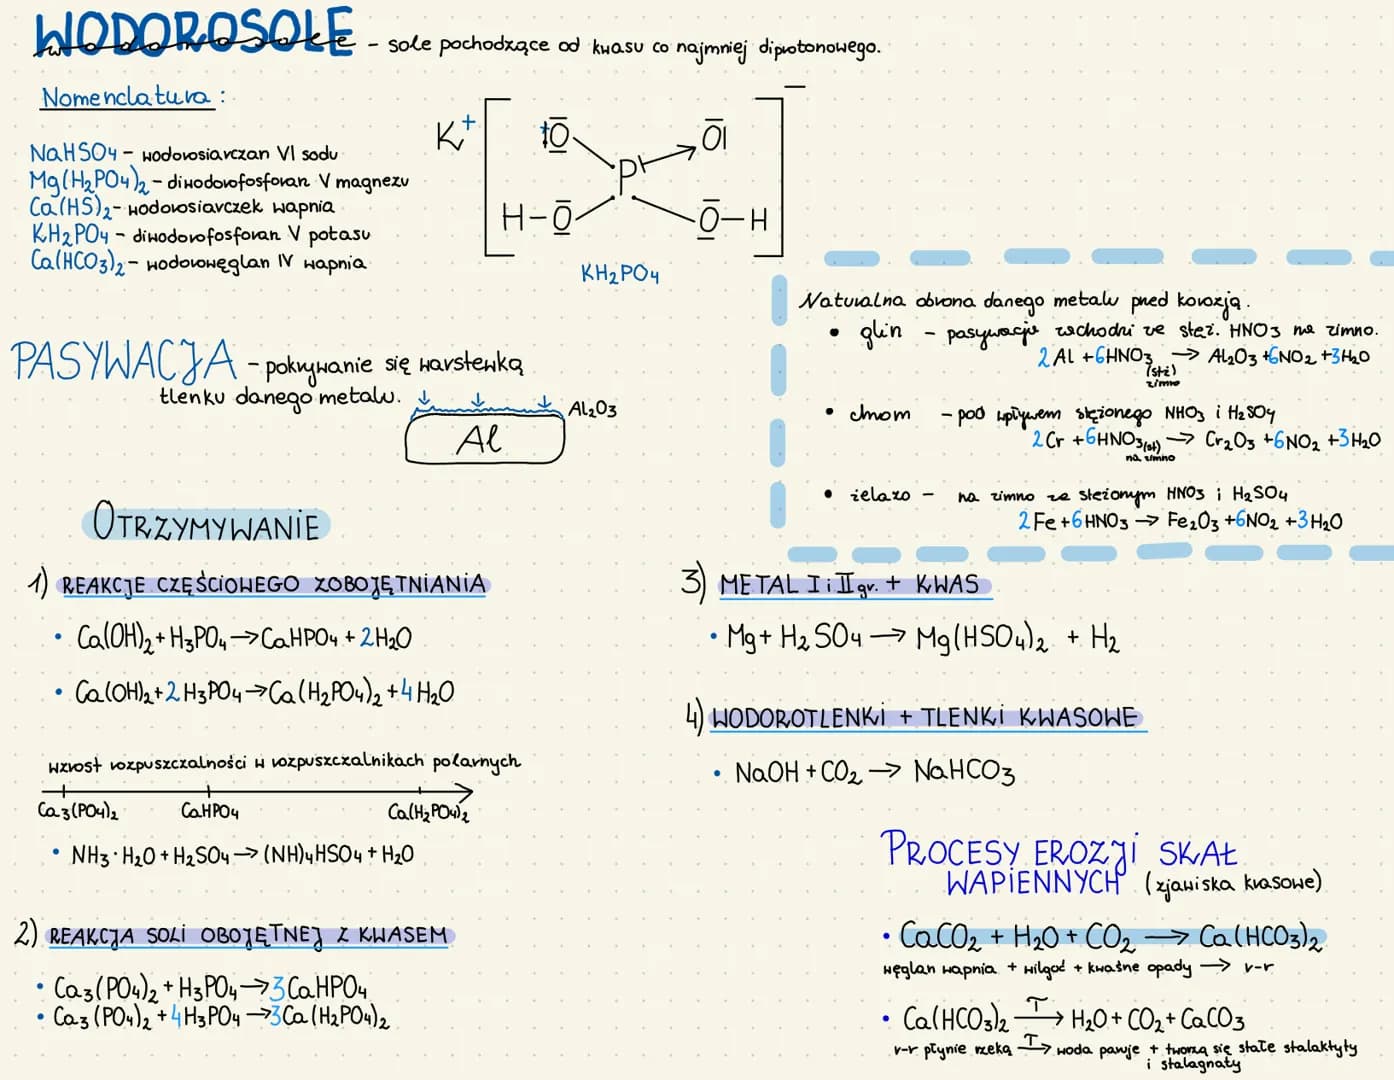 WODOROSOLE - sole pochodzące od kwasu co najmniej diprotonowego.
Nomenclatura:
NaHSO4 - wodorosiarczan VI sodu
Mg(H2PO4)2 - diwodorofosforan V magnezu
Ca(HS)2 - wodorosiarczek wapnia
KH2PO4 - diwodorofosforan V potasu
Ca(HCO3)2 - wodorowęglan IV wapnia
K+
O
OI
P
H-O
O-H
KH2PO4
PASYWACJA - pokrywanie się warstewką
tlenku danego metalu.
Al2O3
Al
Naturalna obrona danego metalu pned korozją.
• glin - pasywacje zachodni ze stęż. HNO3 na zimno.
2Al + 6HNO3 → Al2O3 + 6NO2 + 3H2O
(stż)
zimno
• chrom - pod wpływem stężonego NHO3 i H2SO4
2Cr + 6HNO3(st) → Cr2O3 + 6NO2 + 3H2O
na zimno
• żelazo - na zimno ze stężonym HNO3 i H2SO4
2Fe + 6HNO3 → Fe2O3 + 6NO2 + 3H2O
OTRZYMYWANIE
1) REAKCJE CZĘŚCIOWEGO ZOBOJĘTNIANIA
• Ca(OH)2 + H3PO4 → CaHPO4 + 2H2O
• Ca(OH)2 + 2H3PO4 → Ca(H2PO4)2 + 4H2O
wzrost rozpuszczalności w rozpuszczalnikach polarnych
Ca3(PO4)2 CaHPO4 Ca(H2PO4)2
• NH3·H2O + H2SO4 → (NH)4HSO4 + H2O
2) REAKCJA SOLI OBOJĘTNEJ Z KWASEM
• Ca3(PO4)2 + H3PO4 → 3CaHPO4
• Ca3(PO4)2 + 4H3PO4 → 3Ca(H2PO4)2
3) METAL I i II gr. + KWAS
• Mg + H2SO4 → Mg(HSO4)2 + H2
4) WODOROTLENKI + TLENKI KWASOWE
• NaOH + CO2 → NaHCO3
PROCESY EROZJI SKAŁ
WAPIENNYCH (zjawiska krasowe)
• CaCO2 + H2O + CO2 → Ca(HCO3)2
węglan wapnia + wilgoć + kwaśne opady → r-r
• Ca(HCO3)2 T→ H2O + CO2 + CaCO3
r-r płynie rzeką T→ woda paruje + tworzą się stałe stalaktyty
i stalagnaty